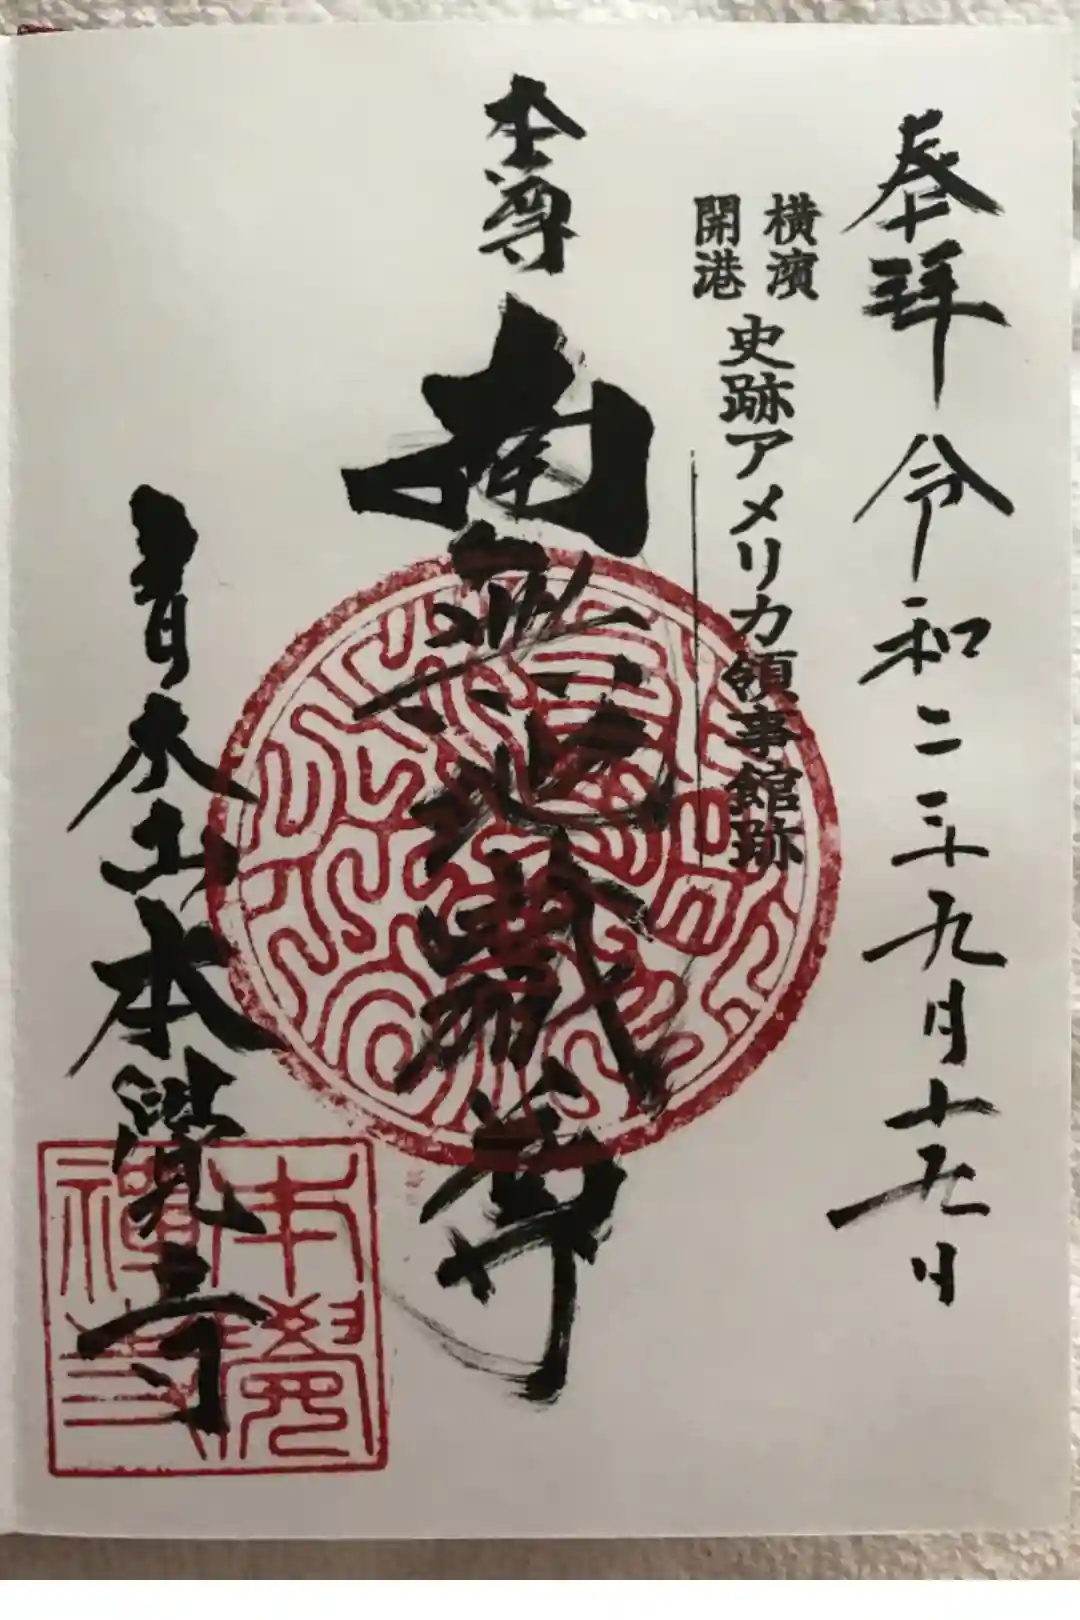 奉拝 令和二年九月十五日
横濱
開港
史跡アメリカ領事館跡
本尊
南無地蔵尊
青木山本覺寺
本覺
禪寺